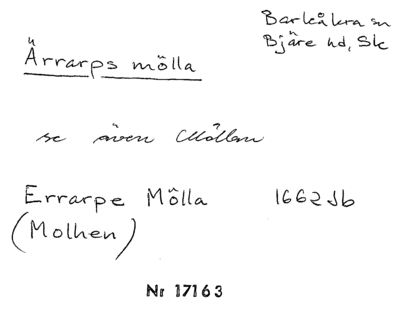 Barkåkra sn
Bjäre hd, Sk
Ärrarps mölla
se även Möllan
Errarpe Mölla 1662 Jb
(Molhen)
Nr 17163